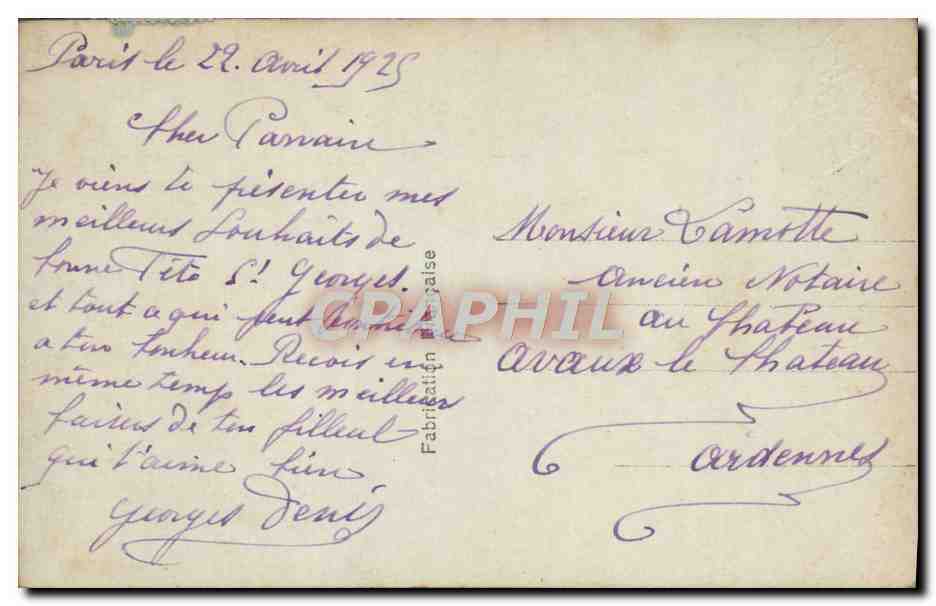 Paris le 22. Avril 1925
Cher Parrain
Je viens te présenter mes
meilleurs Souhaits de
bonne Fête St Georges.
et tout a qui peut
a ton bonheur. Recois en
même temp les meilleur
baisers de ton filleul
qui t'aime bien
Georges Denis
Fabrication Française
CPAPHIL
Monsieur Lamotte
Ancien Notaire
au Chateau
Avaux le Chateau
Ardennes